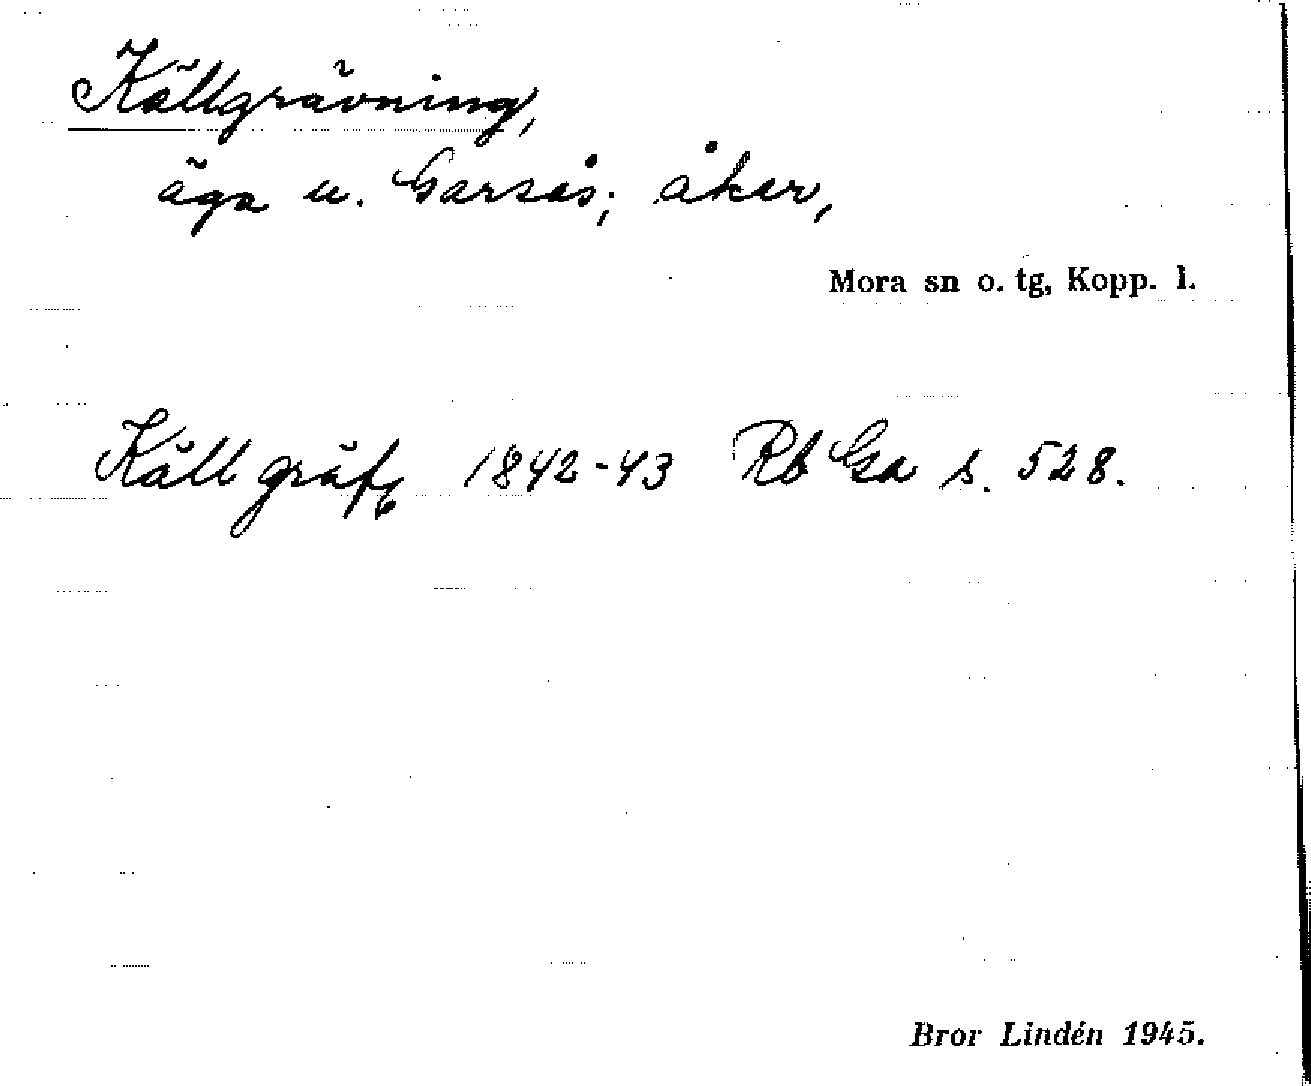 Källgrävning,
äga u. Garsås; åker,
Mora sn o. tg, Kopp. l.
Källgräfg 1842-43 Rb Ga s. 528.
Bror Lindén 1945.